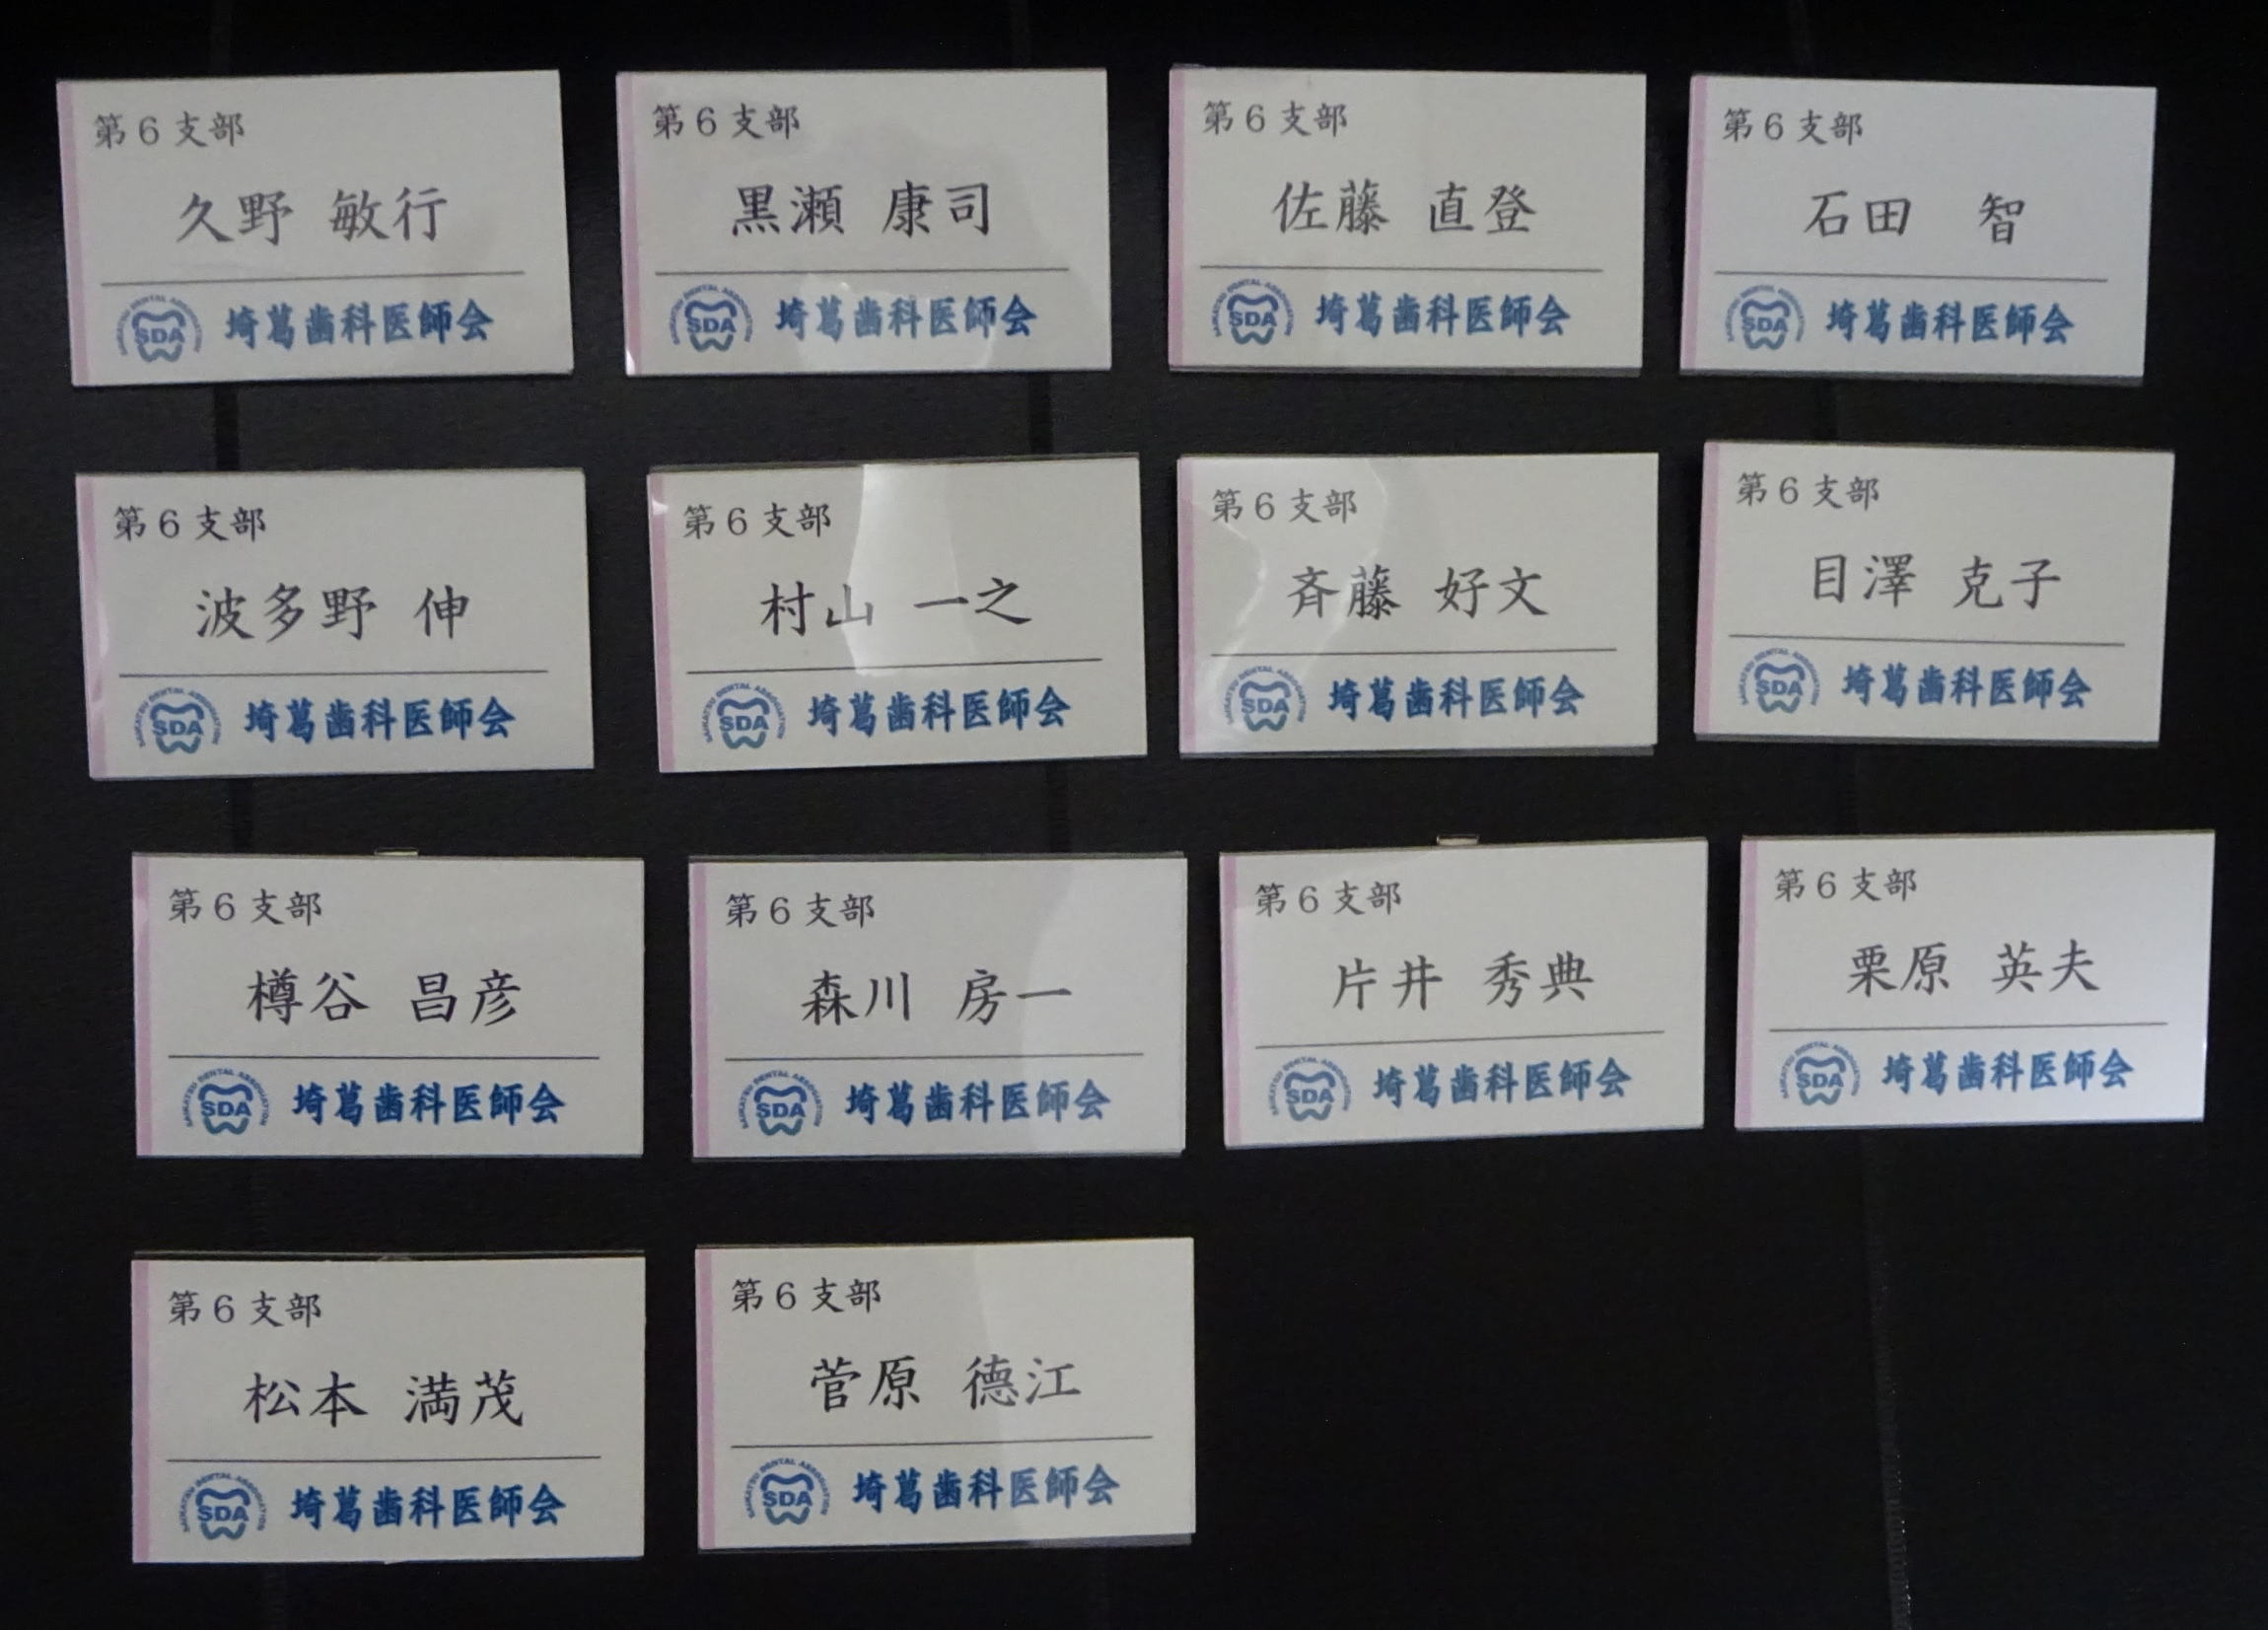 第6支部
久野 敏行
SDA
埼葛歯科医師会
第6支部
黒瀬 康司
SDA
埼葛歯科医師会
第6支部
佐藤 直登
SDA
埼葛歯科医師会
第6支部
石田 智
SDA
埼葛歯科医師会
第6支部
波多野 伸
SDA
埼葛歯科医師会
第6支部
村山 一之
SAIKATSU DENTAL ASSOCIATION
SDA
埼葛歯科医師会
第6支部
斉藤 好文
SDA
埼葛歯科医師会
第6支部
目澤 克子
SDA
埼葛歯科医師会
第6支部
樽谷 昌彦
SAIKATSU DENTAL ASSOCIATION
SDA
埼葛歯科医師会
第6支部
森川 房一
SDA
埼葛歯科医師会
第6支部
片井 秀典
SDA
埼葛歯科医師会
第6支部
栗原 英夫
SDA
埼葛歯科医師会
第6支部
松本 満茂
SDA
埼葛歯科医師会
第6支部
菅原 德江
SAIKATSU DENTAL ASSOCIATION
SDA
埼葛歯科医師会